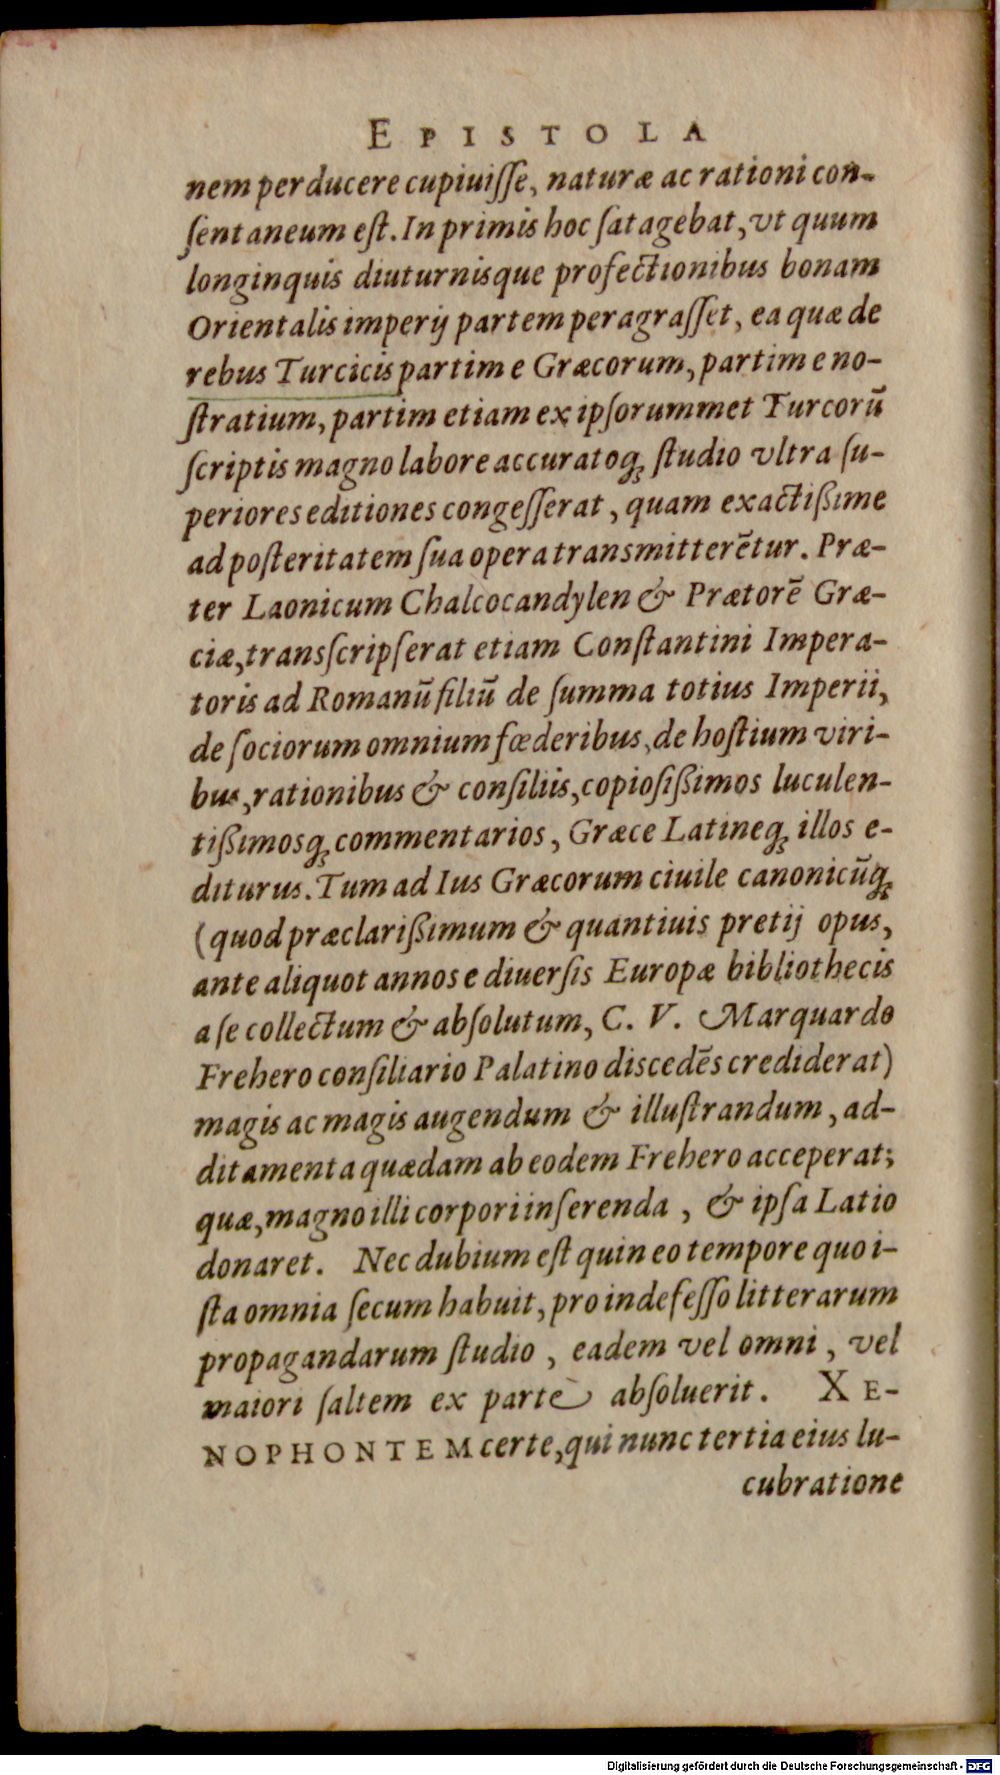 EPISTOLA
nem perducere cupiuiſſe, naturæ ac rationi con-
ſentaneum eſt. In primis hoc ſatagebat, vt quum
longinquis diuturnisque profectionibus bonam
Orientalis imperij partem peragraſſet, ea quæ de
rebus Turcicis partim e Græcorum, partim e no-
ſtratium, partim etiam ex ipſorummet Turcorū
ſcriptis magno labore accuratoq́; ſtudio vltra ſu-
periores editiones congeſſerat, quam exactißime
ad poſteritatem ſua opera transmitterētur. Præ-
ter Laonicum Chalcocandylen & Prætorē Græ-
ciæ, transſcripſerat etiam Conſtantini Impera-
toris ad Romanū filiū de ſumma totius Imperii,
de ſociorum omnium fœderibus, de hoſtium viri-
bus, rationibus & conſiliis, copioſißimos luculen-
tißimosq́; commentarios, Græce Latineq́; illos e-
diturus. Tum ad Ius Græcorum ciuile canonicūq́;
(quod præclarißimum & quantiuis pretij opus,
ante aliquot annos e diuerſis Europæ bibliothecis
a ſe collectum & abſolutum, C. V. Marquardo
Frehero conſiliario Palatino discedēs crediderat)
magis ac magis augendum & illuſtrandum, ad-
ditamenta quædam ab eodem Frehero acceperat;
quæ, magno illi corpori inſerenda, & ipſa Latio
donaret. Nec dubium eſt quin eo tempore quo i-
ſta omnia ſecum habuit, pro indefeſſo litterarum
propagandarum ſtudio, eadem vel omni, vel
maiori ſaltem ex parte abſoluerit. XE-
NOPHONTEM certe, qui nunc tertia eius lu-
cubratione
Digitalisierung gefördert durch die Deutsche Forschungsgemeinschaft - DFG